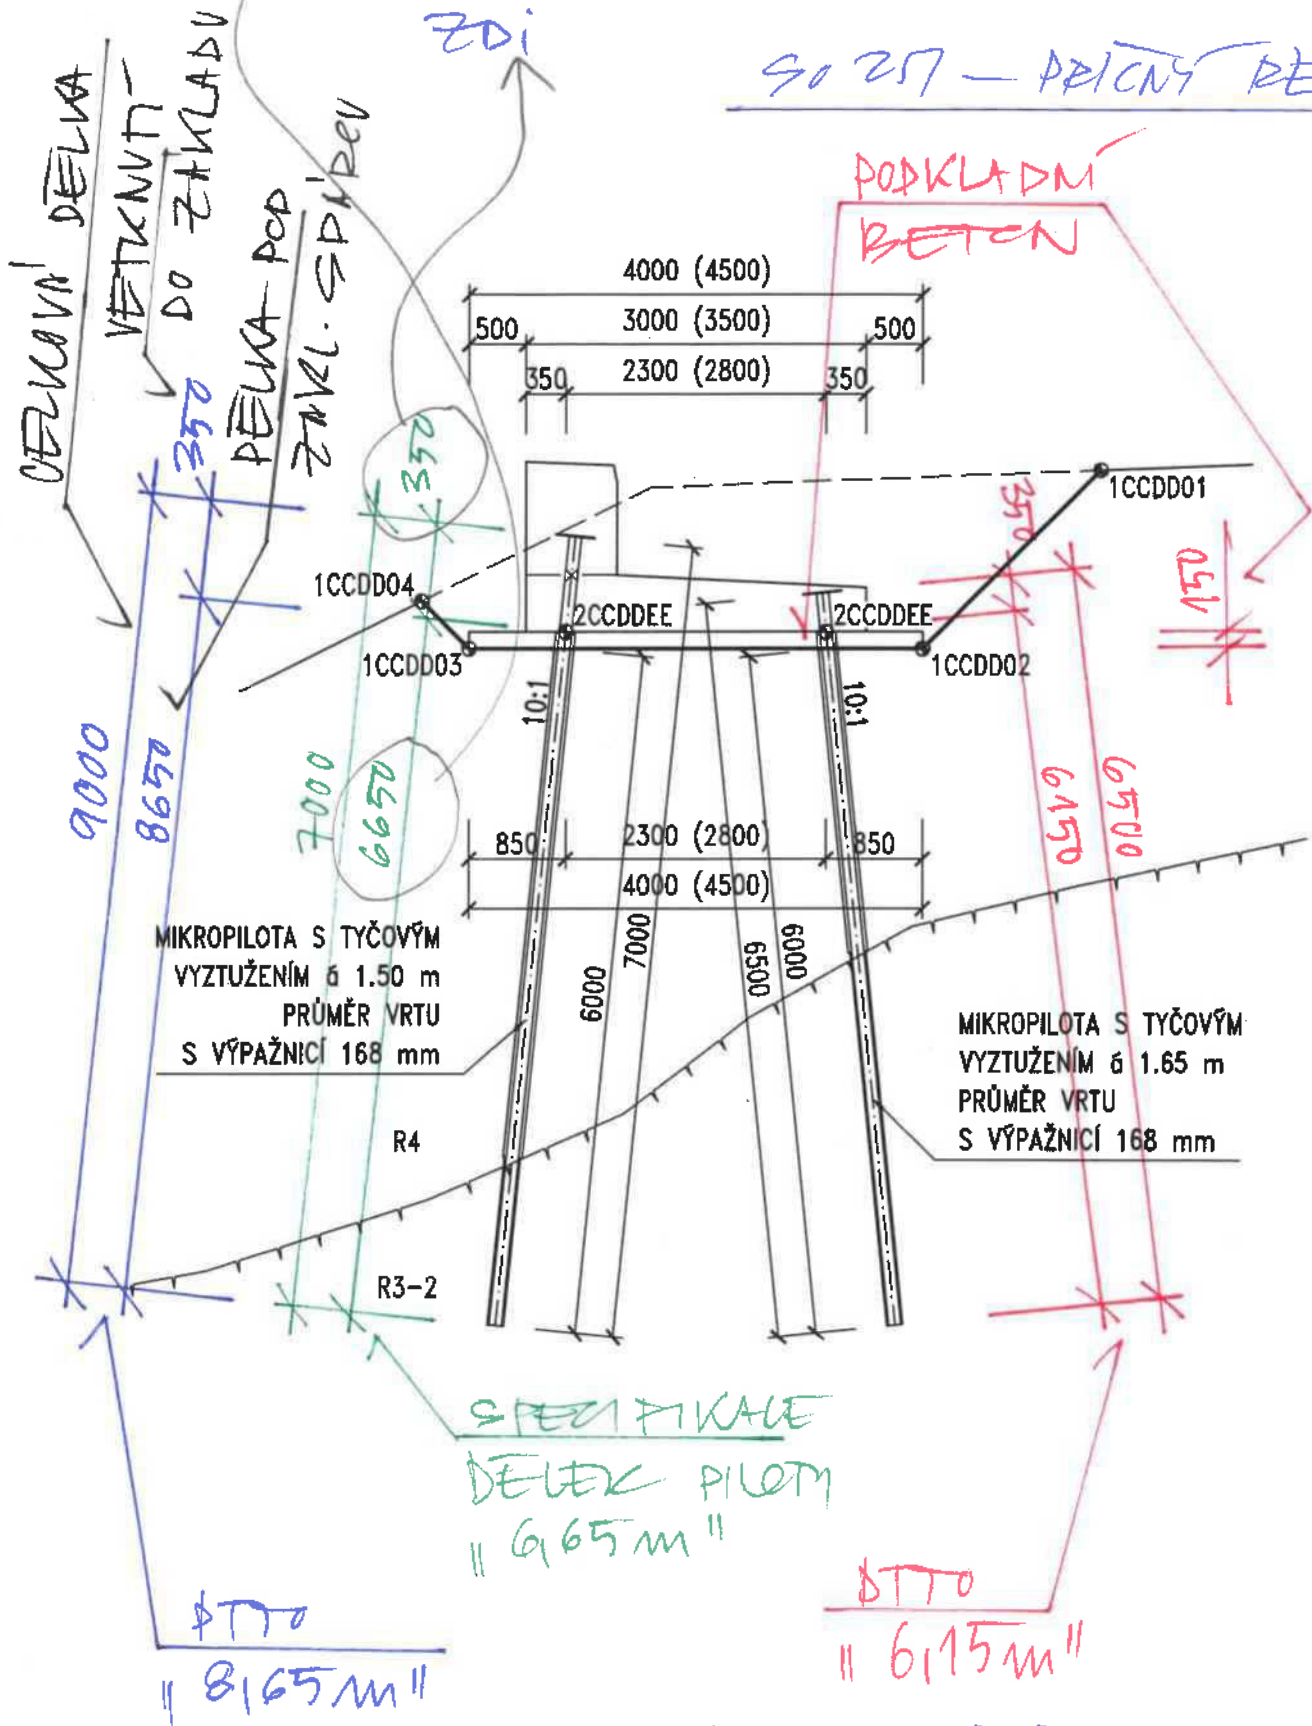 ZDÍ
SO 251 – PŘÍČNÝ ŘE
CELKOVÁ DÉLKA
VETKNUTÍ
DO ZÁKLADU
DÉLKA POD
ZÁKL. SPÁROU
PODKLADNÍ
BETON
4000 (4500)
500
3000 (3500)
500
350
2300 (2800)
350
350
350
350
150
1CCDD01
1CCDD04
2CCDDEE
2CCDDEE
1CCDD03
1CCDD02
10:1
10:1
9000
8650
7000
6650
6150
6500
850
2300 (2800)
850
4000 (4500)
6000
7000
6500
6000
MIKROPILOTA S TYČOVÝM
VYZTUŽENÍM á 1.50 m
PRŮMĚR VRTU
S VÝPAŽNICÍ 168 mm
MIKROPILOTA S TYČOVÝM
VYZTUŽENÍM á 1.65 m
PRŮMĚR VRTU
S VÝPAŽNICÍ 168 mm
R4
R3-2
SPECIFIKACE
DÉLEK PILOTY
"6,65m"
DTTO
"8,65m"
DTTO
"6,15m"